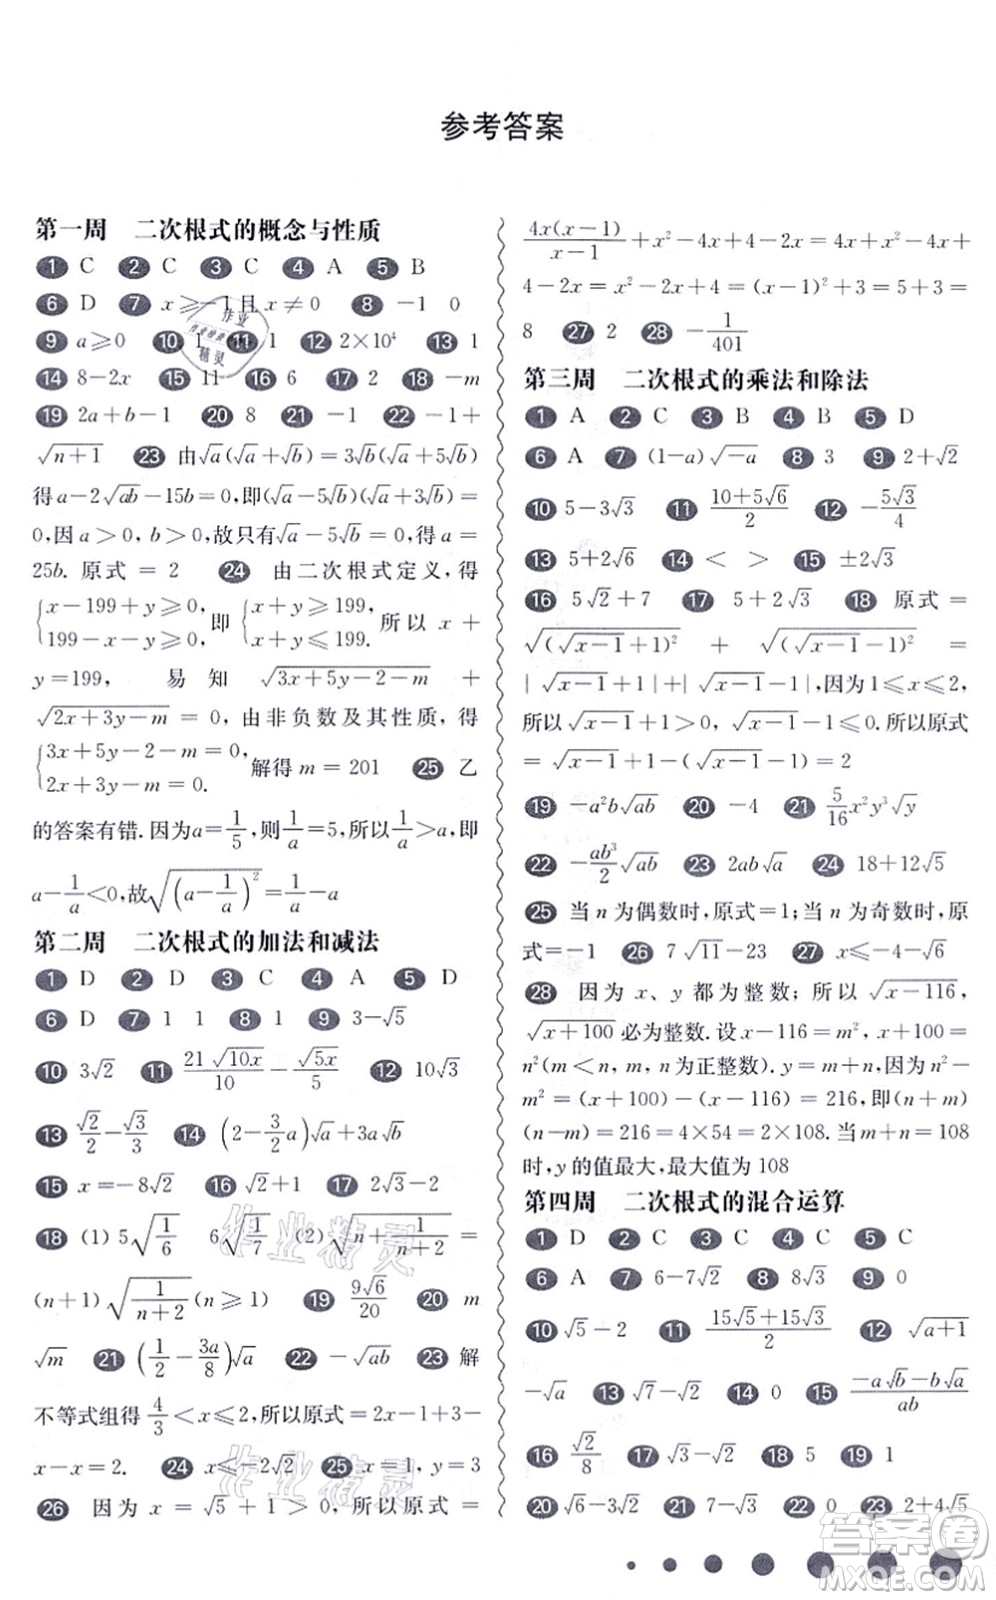 参考答案
第一周 二次根式的概念与性质
1 C 2 C 3 C 4 A 5 B
6 D 7 x≥-1且x≠0 8 -1 0
9 a≥0 10 1 11 1 12 2×10⁴ 13 1
14 8-2x 15 11 16 6 17 2 18 -m
19 2a+b-1 20 8 21 -1 22 -1+
√(n+1) 23 由√a(√a+√b)=3√b(√a+5√b)
得a-2√(ab)-15b=0,即(√a-5√b)(√a+3√b)=
0,因a>0,b>0,故只有√a-5√b=0,得a=
25b.原式=2 24 由二次根式定义,得
{x-199+y≥0, 199-x-y≥0, 即 {x+y≥199, x+y≤199. 所以x+
y=199, 易知 √(3x+5y-2-m) +
√(2x+3y-m)=0,由非负数及其性质,得
{3x+5y-2-m=0, 2x+3y-m=0. 解得m=201 25 乙
的答案有错.因为a=1/5,则1/a=5,所以1/a>a,即
a-1/a<0,故√((a-1/a)²)=1/a-a
第二周 二次根式的加法和减法
1 D 2 D 3 C 4 A 5 D
6 D 7 1 1 8 1 9 3-√5
10 3√2 11 21√(10x)/10-√(5x)/5 12 10√3
13 √2/2-√3/3 14 (2-3/2a)√a+3a√b
15 x=-8√2 16 √2+1 17 2√3-2
18 (1) 5√(1/6) 6√(1/7) (2)√(n+1/(n+2))=
(n+1)√(1/(n+2))(n≥1) 19 9√6/20 20 m
√m 21 (1/2-3a/8)√a 22 -√(ab) 23 解
不等式组得4/3<x≤2,所以原式=2x-1+3-
x-x=2. 24 x≤-2√2 25 x=1,y=3
26 因为x=√5+1>0,所以原式=
4x(x-1)/(x-1)+x²-4x+4-2x=4x+x²-4x+
4-2x=x²-2x+4=(x-1)²+3=5+3=
8 27 2 28 -1/401
第三周 二次根式的乘法和除法
1 A 2 C 3 B 4 B 5 D
6 A 7 (1-a)√(-a) 8 3 9 2+√2
10 5-3√3 11 (10+5√6)/2 12 -5√3/4
13 5+2√6 14 < > 15 ±2√3
16 5√2+7 17 5+2√3 18 原式=
√((√(x-1)+1)²) + √((√(x-1)-1)²) =
|√(x-1)+1|+|√(x-1)-1|,因为1≤x≤2,
所以√(x-1)+1>0,√(x-1)-1≤0.所以原式
=√(x-1)+1-(√(x-1)-1)=2
19 -a²b√(ab) 20 -4 21 5/16x²y³√y
22 -ab³/2√(ab) 23 2ab√(ab) 24 18+12√5
25 当n为偶数时,原式=1;当n为奇数时,原
式=-1 26 7√11-23 27 x≤-4-√6
28 因为x、y都为整数;所以√(x-116),
√(x+100)必为整数.设x-116=m²,x+100=
n²(m<n,m,n为正整数).y=m+n,n²-
m²=(x+100)-(x-116)=216,即(n+m)
(n-m)=216=4×54=2×108.当m+n=108
时,y的值最大,最大值为108
第四周 二次根式的混合运算
1 D 2 C 3 C 4 C 5 C
6 A 7 6-7√2 8 8√3 9 0
10 √5-2 11 (15√5+15√3)/2 12 √(a+1)
-√a 13 √7-√2 14 0 15 (-a√b-b√a)/ab
16 √2/8 17 √3-√2 18 5 19 1
20 √6-3√2 21 7-√3 22 0 23 2+4√5
作业精灵
作业精灵
答案圈
MXQE.COM